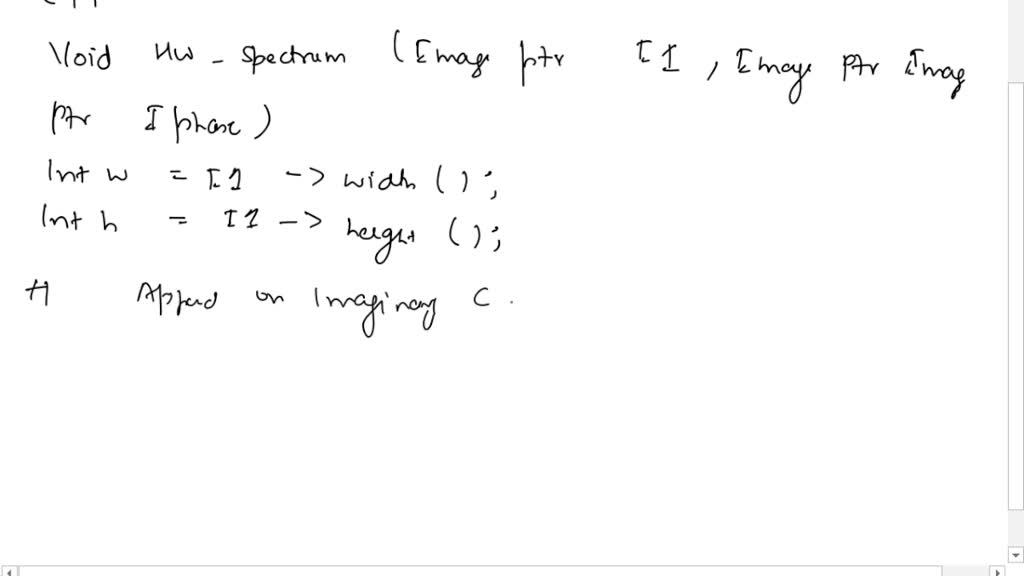 Void HW_spectrum (Image ptr I1, Image ptr Imag
ptr Iphase)
Int w = I1 -> width ( );
Int h = I1 -> height ( );
Append on Imaginary C.